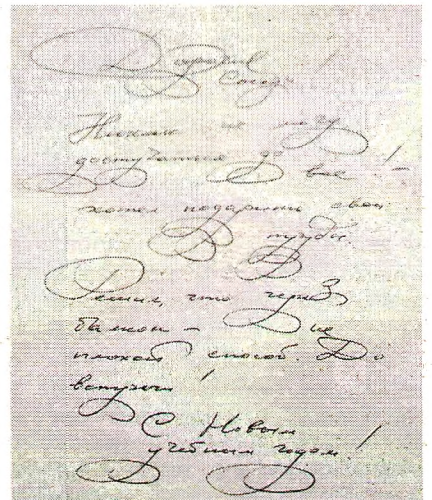 Дорогие
Соседи!
Никак не могу
достучаться до вас! –
хотел подарить свои
труды.
Решил, что через
балкон – не
плохой способ. До
встречи!
С Новым
учебным годом!